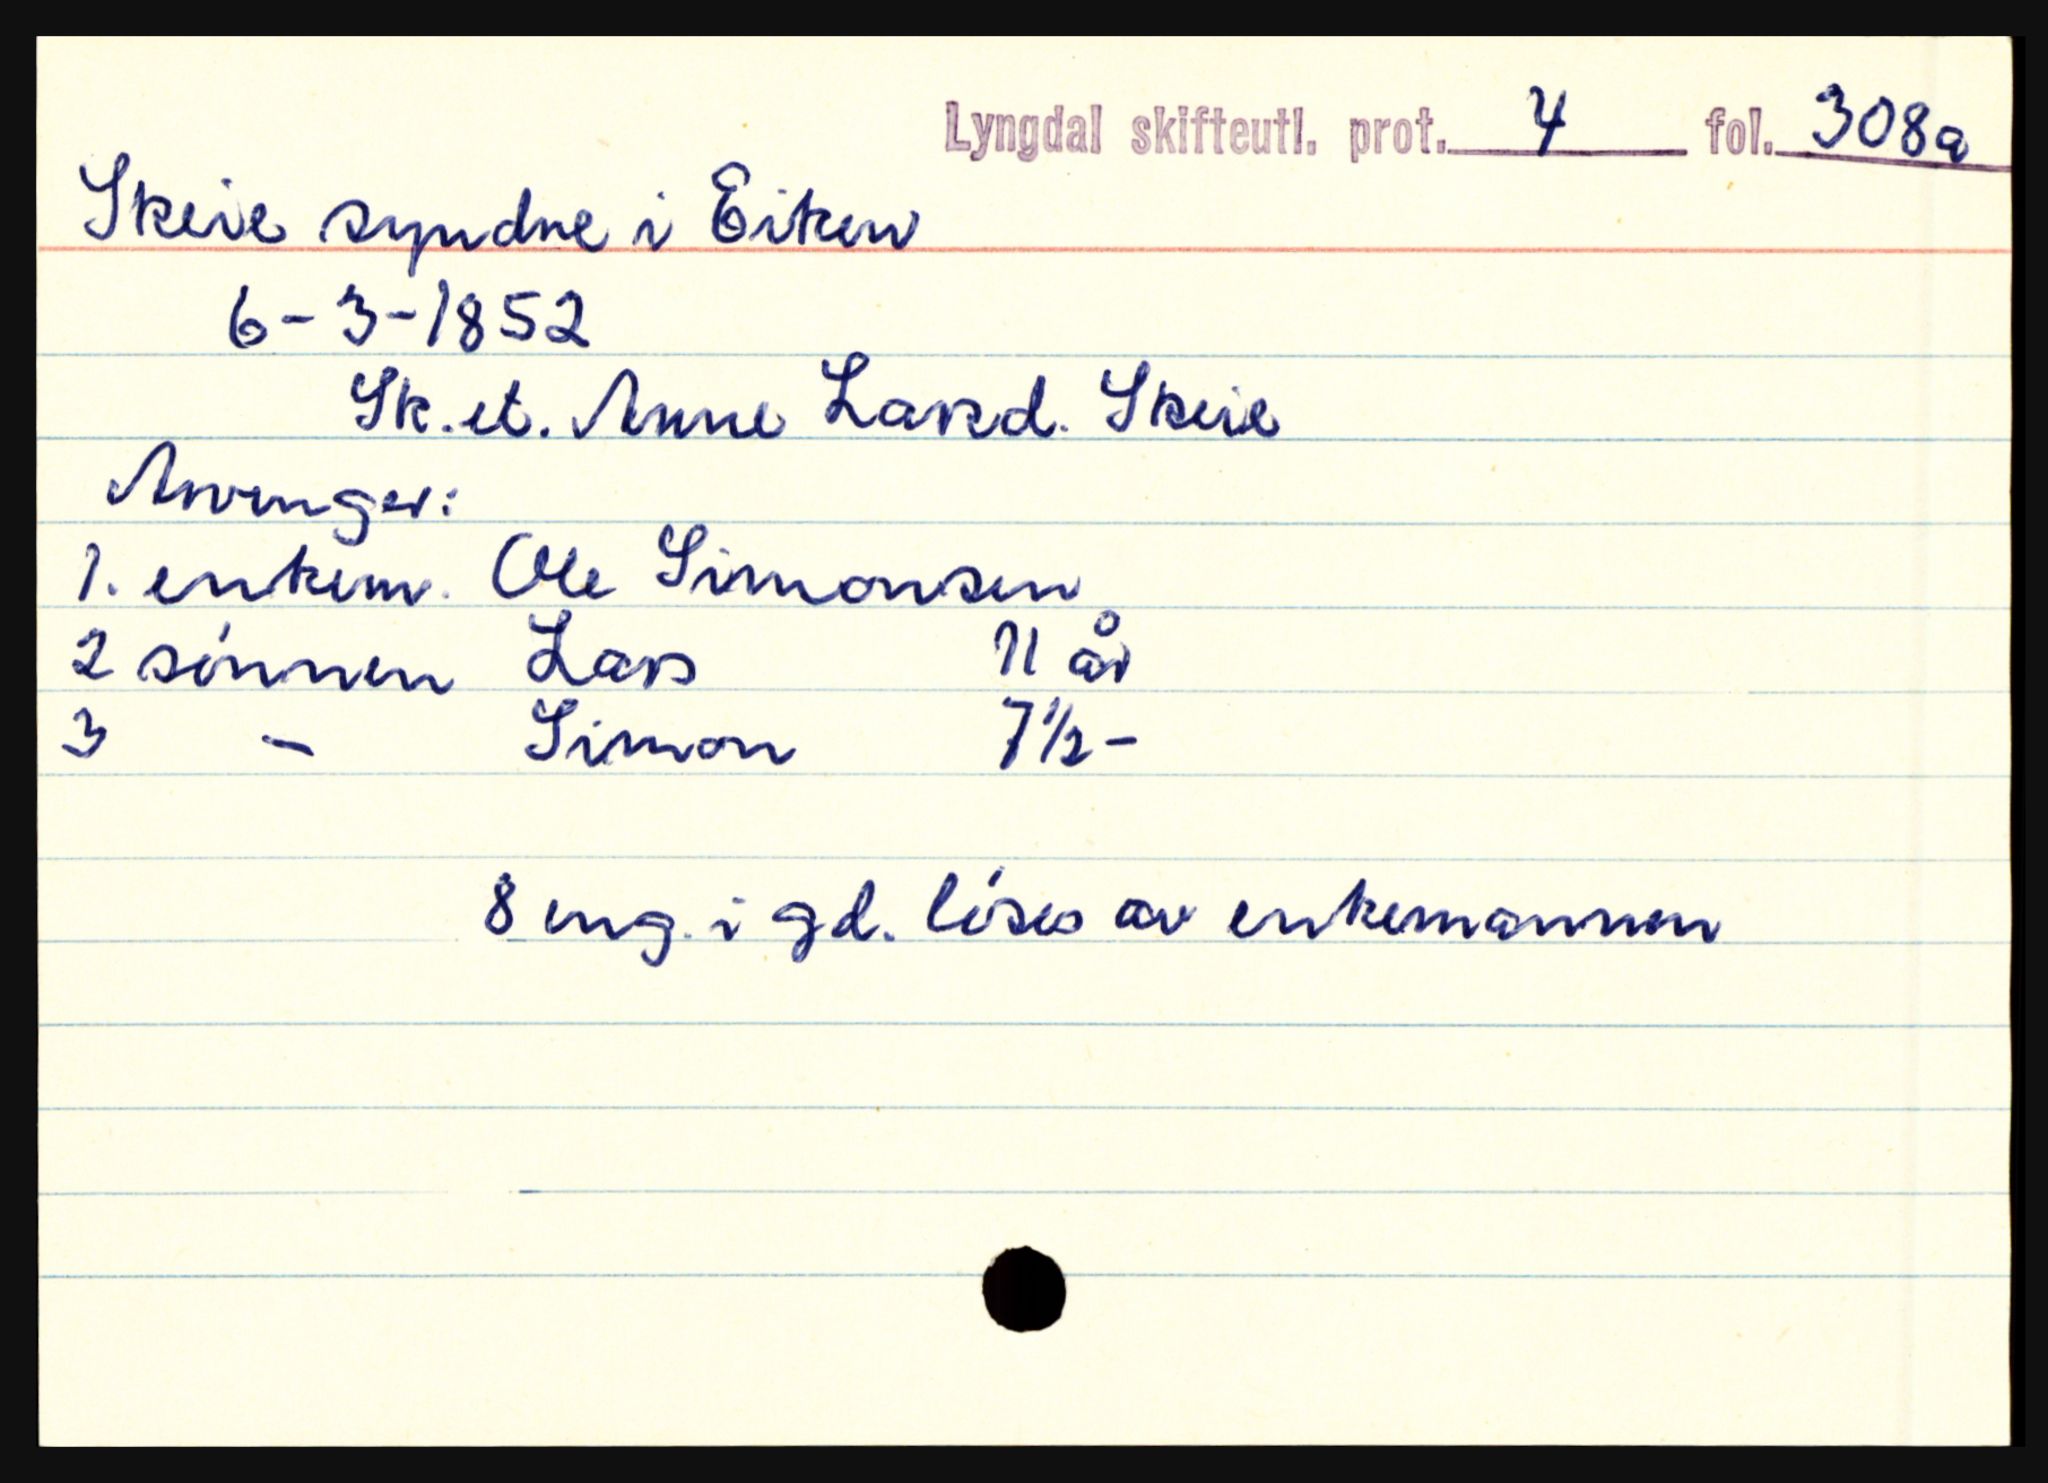 Lyngdal skifteutl. prot. 4 fol. 308a
Skeie syndre i Eiken
6-3-1852
Sk. et. Anne Larsd. Skeie
Arvinger:
1. enkem. Ole Simonsen
2 sønnen Lars 11 år
3 - Simon 7½ -
8 eng. i gd. løses av enkemannen